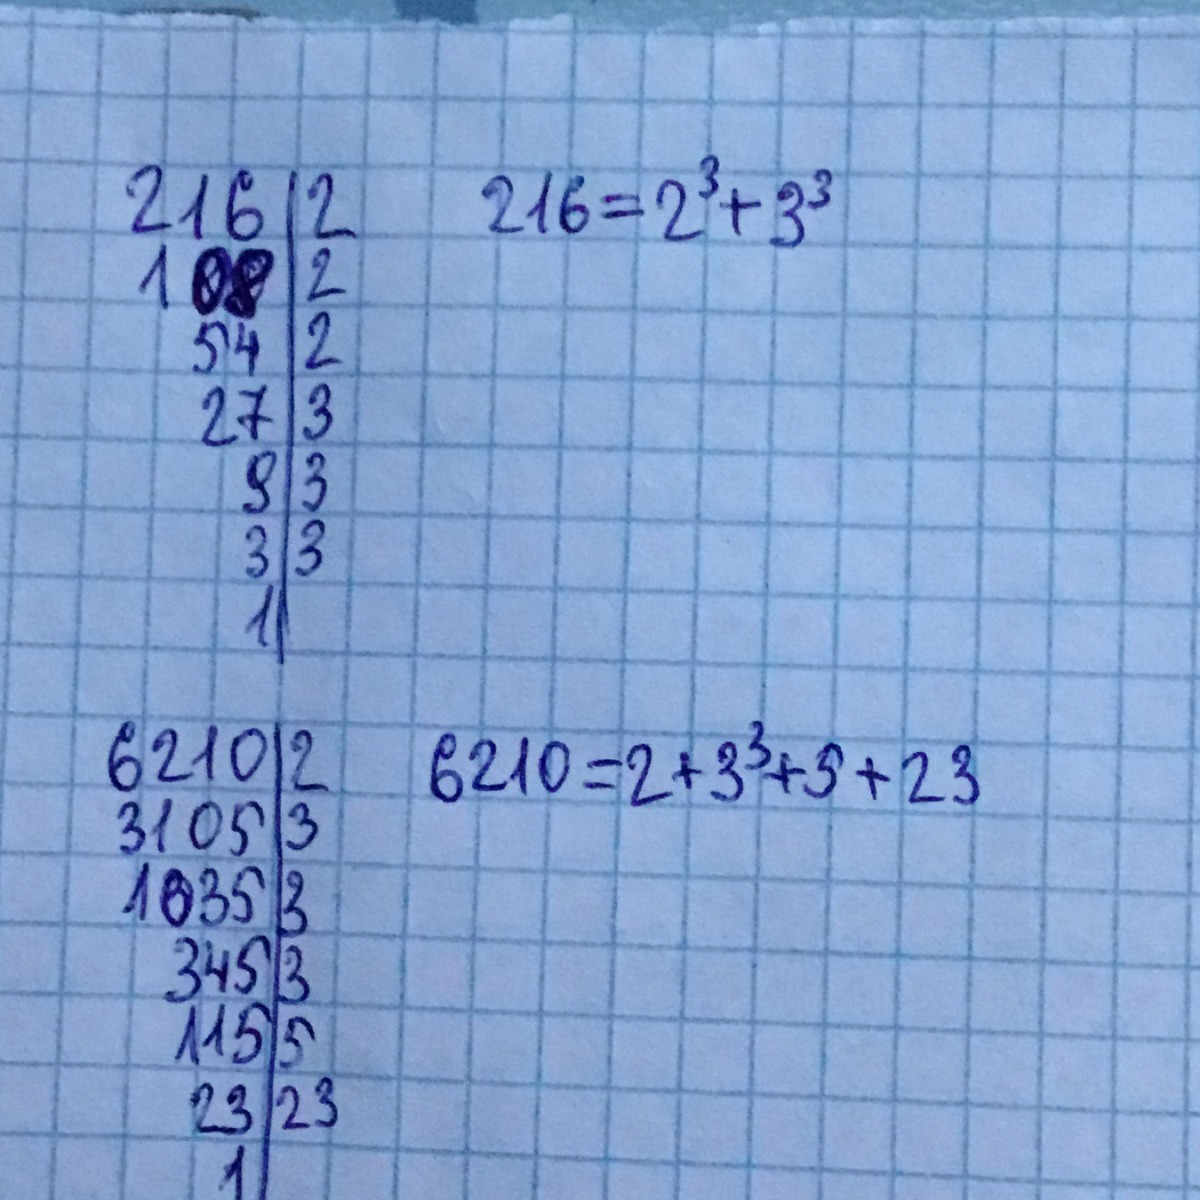 216|2 216=2³+3³
108|2
54|2
27|3
9|3
3|3
1|
6210|2 6210=2+3³+5+23
3105|3
1035|3
345|3
115|5
23|23
1|